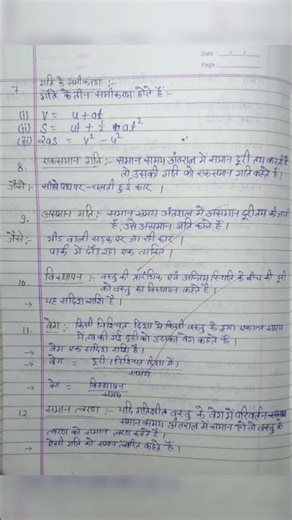 Date
Page
7. गति के समीकरण :-
गति के तीन समीकरण होते हैं :-
(i) v = u + at
(ii) s = ut + 1/2 at²
(iii) 2as = v² - u²
8. एकसमान गति :- समान समय अंतराल में समान दूरी तय करती है
तो उसकी गति को एकसमान गति कहते हैं ।
जैसे :- सीधे पथ पर चलती हुई कार ।
9. असमान गति :- समान समय अंतराल में असमान दूरी तय
है, उसे असमान गति कहते हैं ।
जैसे :- भीड़ वाली सड़क पर जा रही कार ।
पार्क में दौड़ रहा एक व्यक्ति ।
10. विस्थापन :- वस्तु की प्रारंभिक एवं अन्तिम स्थिति के बीच की दूरी
को वस्तु का विस्थापन कहते है ।
→ यह सदिश राशि है ।
11. वेग :- किसी निश्चित दिशा में किसी वस्तु के द्वारा एकांक समय
में तय की गई दूरी को उसका वेग कहते है ।
→ वेग एक सदिश राशि है ।
→ वेग = दूरी (निश्चित दिशा में)
समय
→ वेग = विस्थापन
समय
12. समान त्वरण :- यदि गतिशील वस्तु के वेग में परिवर्तन
समान समय अंतराल में समान हो तो वस्तु के
त्वरण को समान त्वरण कहते हैं ।
→ ऐसी गति को समान त्वरित कहते हैं ।